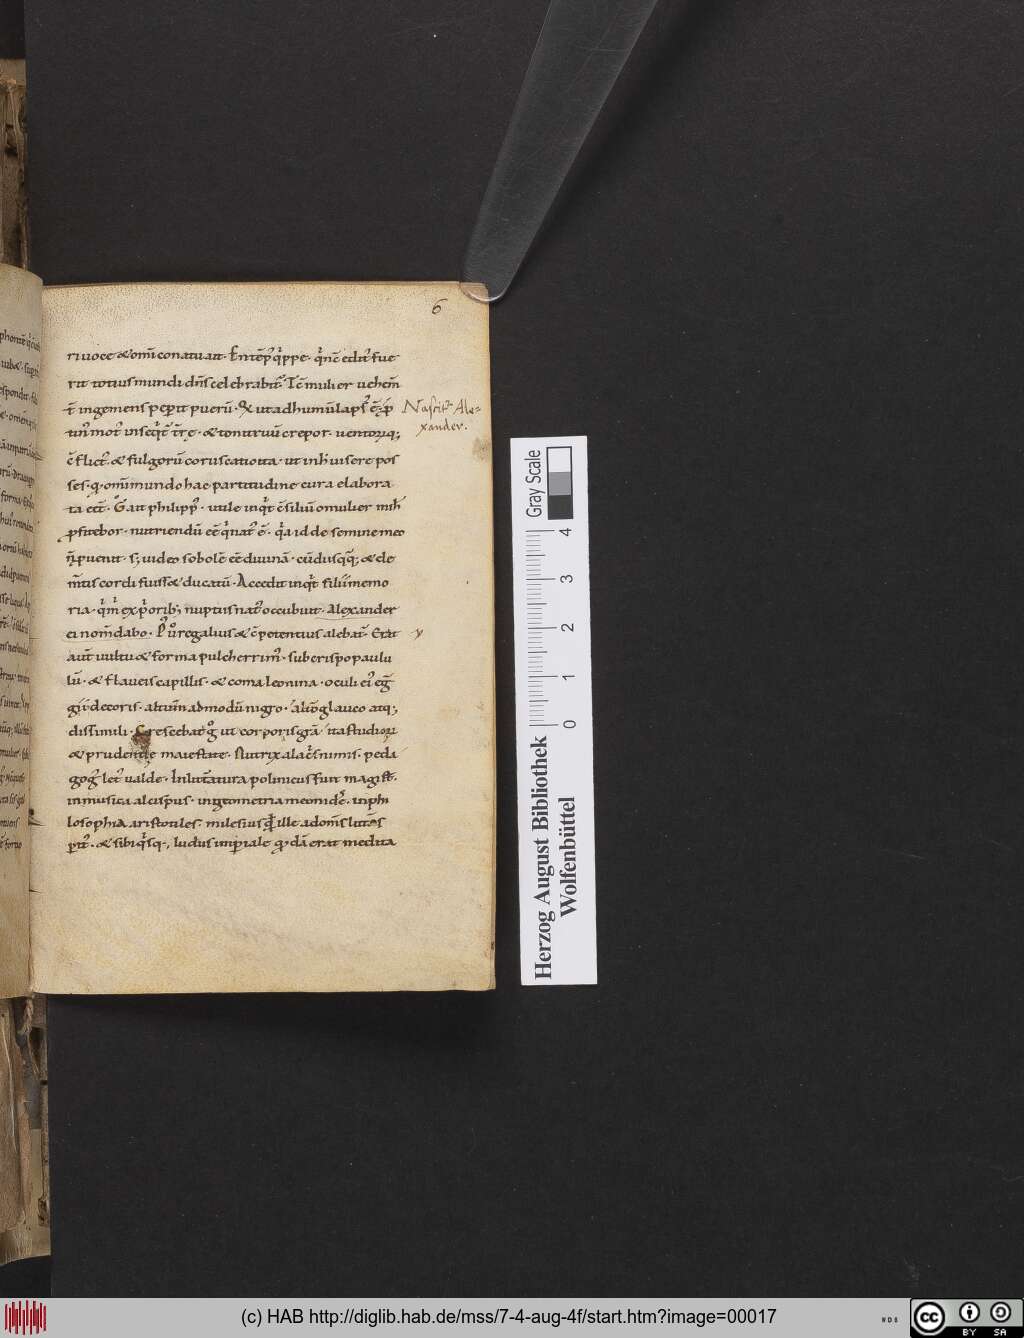 6
ri uoce & om̄i conatu ait· En tēp᷒ q̇ppe· q̇ nc̄ editꝰ fue
rit totius mundi dn̄s celebrabitꝰ Tc̄ mulier uehem̄
t̄ ingemens pepit puerū·
Nascitr Ale=
xander.
tin᷒ motꝰ inseq̄t᷒ t̄rę· & tonitruū crepor· uentorūq;
c̄flictꝰ· & fulgorū coruscatio ita· ut inhi uisere pos
ses· q· om̄i mundo hac partitudine cura elabora
ta ēet· G̊ ait philippꝰ· utile inq̇t c̄siliū o mulier mih
ꝓfitebor· nutriendū eē q̇ natꝰ ē· q̇a id de semine meo
n̄ puenit· s; uideo sobolē eē diuinā·
m̄tis cordi fuiss& ducatū· Accedit inq̇t filii memo
ria· q̇ m̄ ex p̄orib; nuptiis natꝰ occubuit· Alexander
ei nom̄ dabo· Pu᷒ regalius & c̄petentius alebat᷒· Erat
y
aut̄ uultu & forma pulcherrimꝰ· suberispo paulu
lū· & flaueis capillis· & coma leonina· oculi eiꝰ eg̅
gii decoris· altum̄ admodū nigro· altō glauco atq;
dissimili· Crescebat g̊ ut corporis grā· ita studiorū
& prudentię maiestate· Nutrix alac̄s nimis· peda
gogꝰ letꝰ ualde· In litt̄atura polinicus fuit magist̄·
in musica alcispus· in geometria meonidēs· in phi
losophia aristotiles milesius ille ad om̄s litt̄as
pit᷒· & sibi q̇sq·, ludus imp̄iale qdā erat medita
Herzog August Bibliothek
Wolfenbüttel
0 1 2 3 4
Gray Scale
(c) HAB http://diglib.hab.de/mss/7-4-aug-4f/start.htm?image=00017
cc BY SA